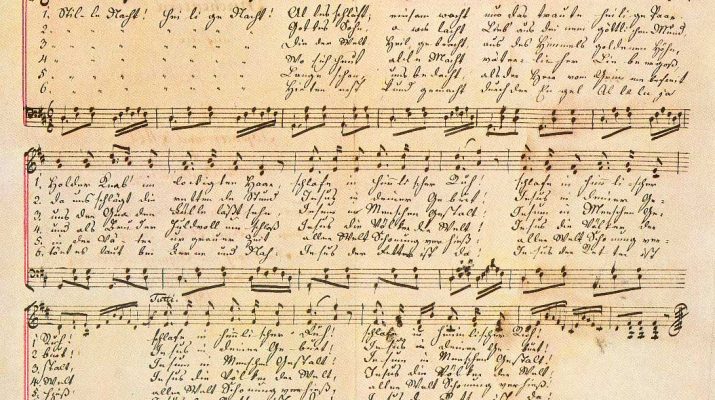 1. Stil-le Nacht! Hei li ge Nacht! Al les schläft; einsam wacht nur das traute heili ge Paar.
2 " " " " " Gottes Sohn, o wie lacht Lieb aus deinem göttlichen Mund,
3 " " " " " Die der Welt Heil gebracht aus des Himmels goldenen Höhn,
4 " " " " " Wo sich heut alle Macht väter-licher Liebe ergoß,
5 " " " " " Lange schon uns bedacht, als der Herr vom Grimm befreit
6 " " " " " Hirten erst kund gemacht durch der Engel Al le lu ja
1. Holder Knab' im lockigten Haare, schlafe in himmlischer Ruh! schlafe in himmlischer
2. Da uns schlägt die rettende Stund Jesus in deiner Geburt! Jesus in deiner Ge-
3. uns der Gnaden Fülle läßt sehn, Jesum in Menschen Gestalt! Jesum in Menschen Ge-
4. und als Bruder huldvoll umschloß Jesus die Völker der Welt! Jesus die Völker der
5. in der Väter urgrauer Zeit aller Welt Schonung verhieß! aller Welt Schonung ver-
6. tönt es laut bei Ferne und Nah: Jesus der Retter ist da! Jesus der Retter ist
Tutti.
1 Ruh! schlafe in himmlischer Ruh! schlafe in himmlischer Ruh!
2 burt! Jesus in deiner Geburt! Jesus in deiner Geburt!
3. stalt! Jesum in Menschen Gestalt! Jesum in Menschen Gestalt!
4. Welt Jesus die Völker der Welt! Jesus die Völker der Welt!
5. hieß! aller Welt Schonung verhieß! aller Welt Schonung verhieß!